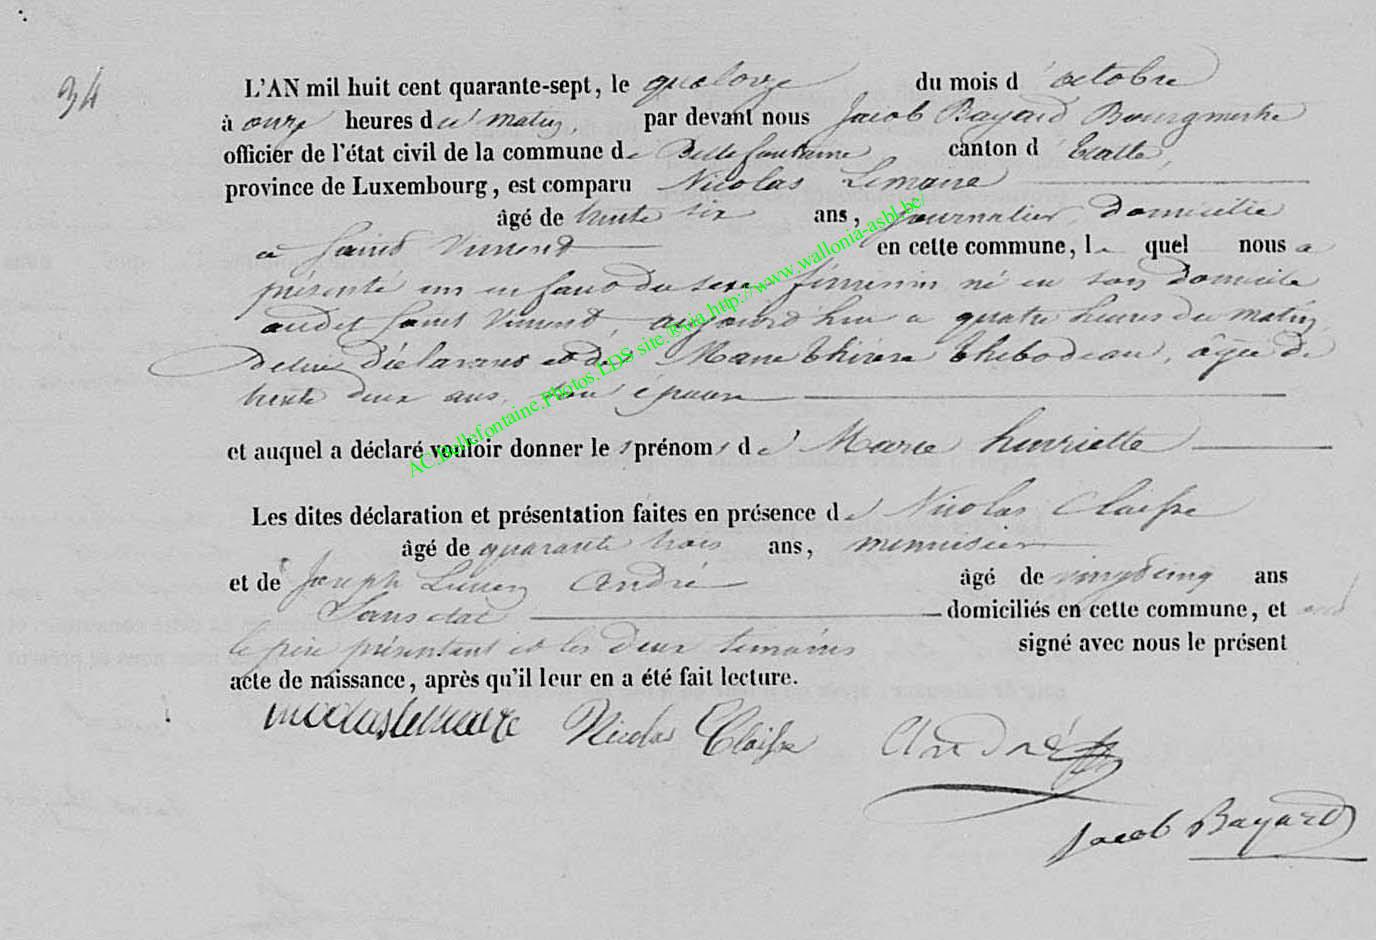 34
L'AN mil huit cent quarante-sept, le quatorze du mois d'octobre
à onze heures du matin, par devant nous Jacob Bayard Bourgmestre
officier de l'état civil de la commune de Bellefontaine canton d'Etalle,
province de Luxembourg, est comparu Nicolas Lemaire
âgé de trente six ans, journalier, domicilié
à Saint Vincent en cette commune, le quel nous a
présenté un enfant du sexe féminin né en son domicile
audit Saint Vincent, aujourd'hui a quatre heures du matin,
De lui Déclarant et de Marie Thérèse Thibodeau, âgée de
trente deux ans, son épouse
et auquel a déclaré vouloir donner les prénoms de Marie henriette
Les dites déclaration et présentation faites en présence de Nicolas Claisse
âgé de quarante trois ans, menuisier
et de Joseph Lucien André âgé de vingt cinq ans
Sans état domiciliés en cette commune, et
le père présentant et les deux témoins signé avec nous le présent
acte de naissance, après qu'il leur en a été fait lecture.
nicolas lemaire Nicolas Claisse André
Jacob Bayard
AC.Bellefontaine.Photos.LDS site.®via.http://www.wallonia-asbl.be/